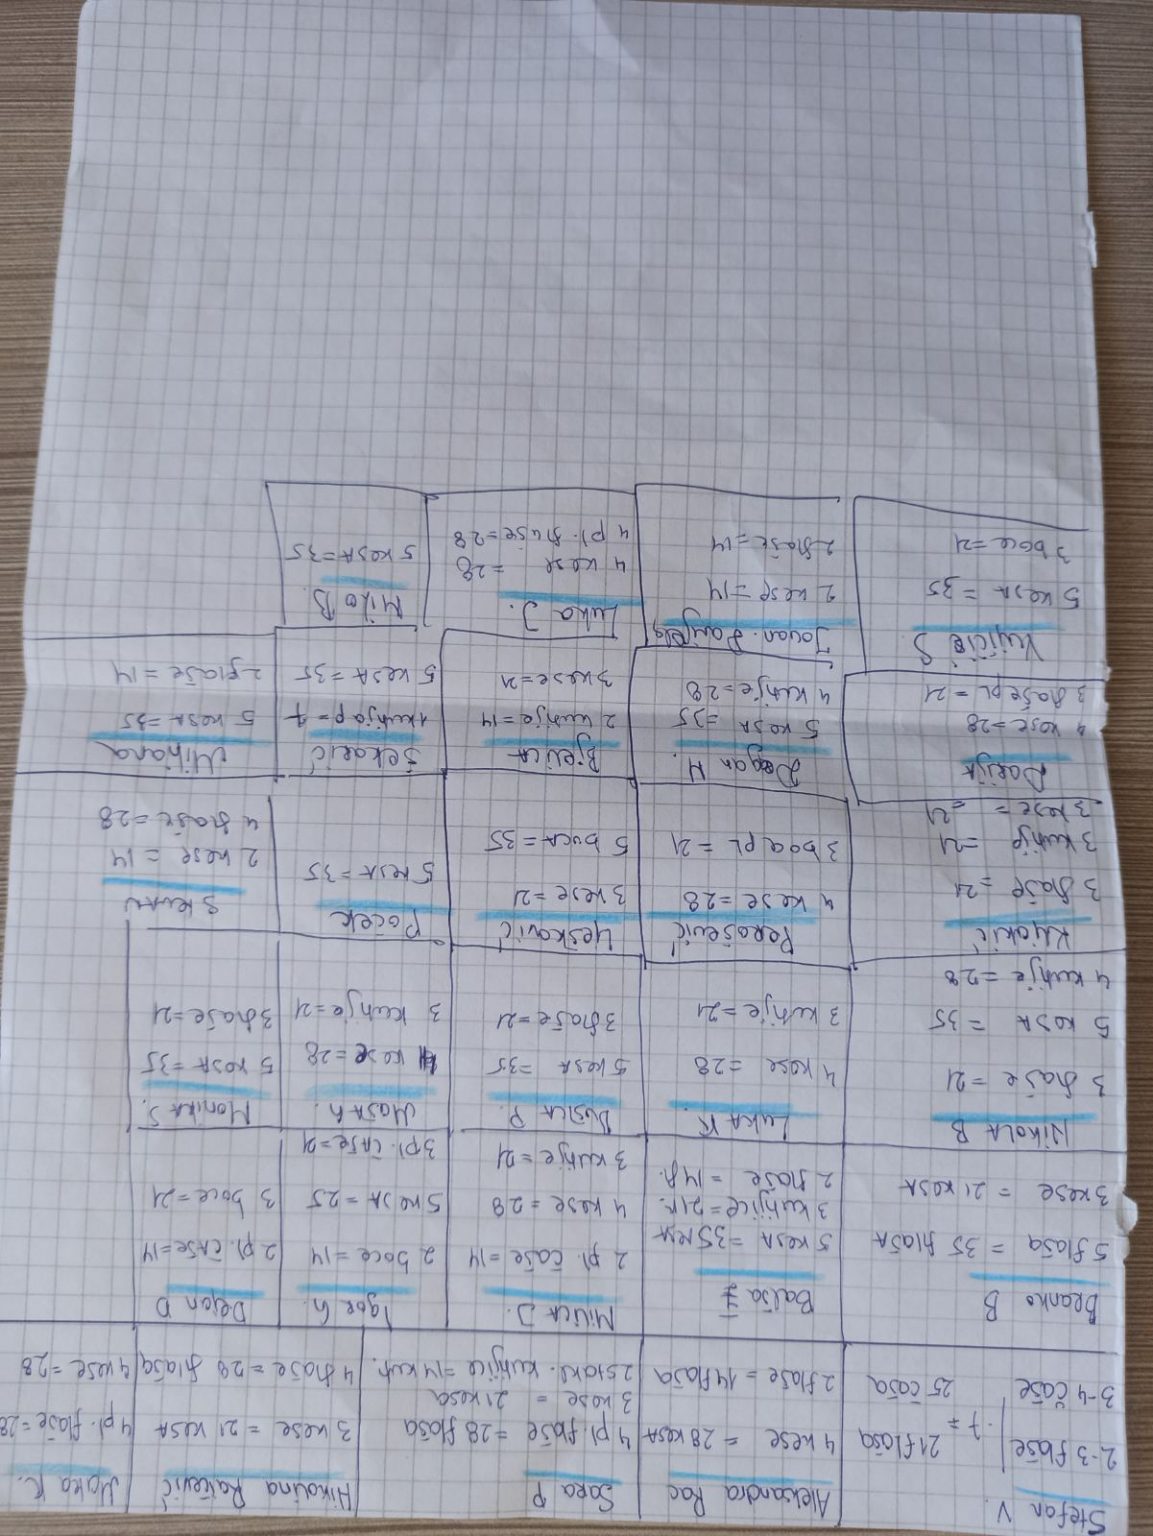 Stefan V.
2-3 flaše
3-4 čaše
· 7 =
21 flaša
25 čaša
Aleksandra Rac
4 kese = 28 kesa
2 flaše = 14 flaša
Sara P
4 pl. flaše = 28 flaša
3 kese = 21 kesa
2 stakl. kutijice = 14 kut.
Nikolina Rašević
3 kese = 21 kesa
4 flaše = 28 flaša
K.
4 pl. flaše = 28
4 kese = 28
Branko B
5 flaša = 35 flaša
3 kese = 21 kesa
Balša
5 kesa = 35 kesa
3 kutijice = 21 k.
2 flaše = 14 fl.
Milica J.
2 pl. čaše = 14
4 kese = 28
3 kutije = 21
Igor
2 boce = 14
5 kesa = 25
3 pl. čaše = 21
Dejan D
2 pl. čaše = 14
3 boce = 21
Nikola B
3 flaše = 21
5 kesa = 35
4 kutije = 28
Luka K.
4 kese = 28
3 kutije = 21
Dušica P.
5 kesa = 35
3 flaše = 21
Maša
4 kese = 28
3 kutije = 21
Monika S.
5 kesa = 35
3 flaše = 21
3 flaše = 21
3 kutije = 21
3 kese = 21
Perošević
4 kese = 28
3 boce pl = 21
Ljesković
3 kese = 21
5 boca = 35
Poček
5 kesa = 35
2 kese = 14
4 flaše = 28
Darija
4 kese = 28
3 flaše pl = 21
Dragan M.
5 kesa = 35
4 kutije = 28
Bjelica
2 kutije = 14
3 kese = 21
Šekarić
1 kutija p = 7
5 kesa = 35
5 kesa = 35
2 flaše = 14
Vujičić S
5 kesa = 35
3 boce = 21
Jovan
2 kese = 14
2 flaše = 14
Luka J.
4 kese = 28
4 pl. flaše = 28
Mito B.
5 kesa = 35